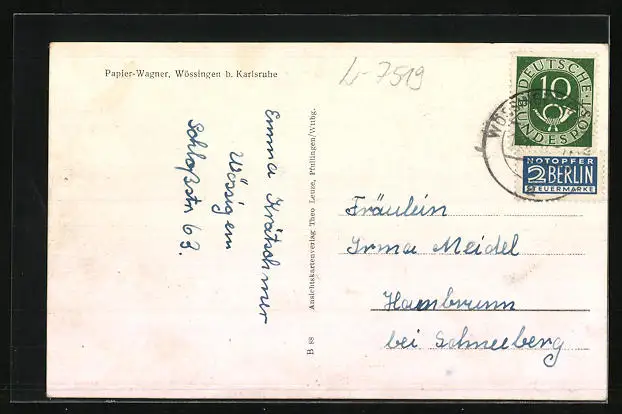 Papier-Wagner, Wössingen b. Karlsruhe
L-7519
DEUTSCHE
10
BUNDESPOST
NOTOPFER
2 BERLIN
STEUERMARKE
Emma Krätschmer
Wössigem
Schloßstr 63.
B 88 Ansichtskartenverlag Theo Leuze, Pfullingen/Wttbg.
Fräulein
Irma Meidel
Hambrunn
bei Schneeberg